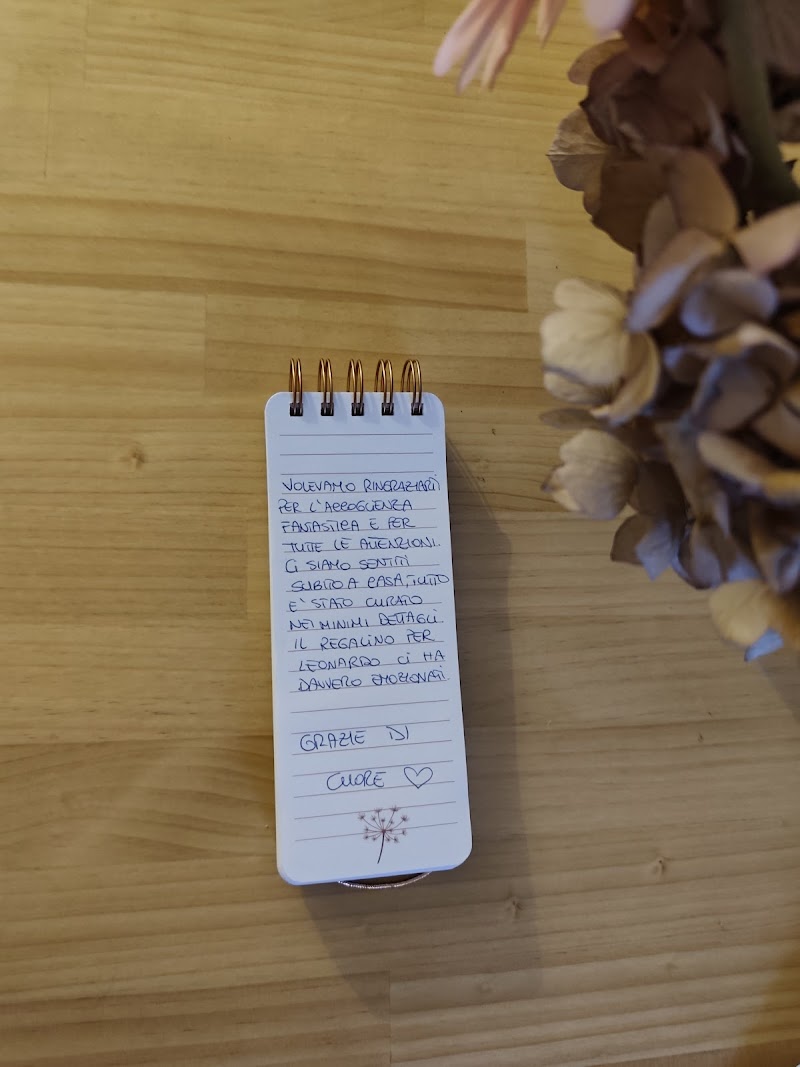 VOLEVAMO RINGRAZIARTI
PER L'ACCOGLIENZA
FANTASTICA E PER
TUTTE LE ATTENZIONI.
CI SIAMO SENTITI
SUBITO A CASA, TUTTO
E' STATO CURATO
NEI MINIMI DETTAGLI.
IL REGALINO PER
LEONARDO CI HA
DAVVERO EMOZIONATI.
GRAZIE DI
CUORE ♡